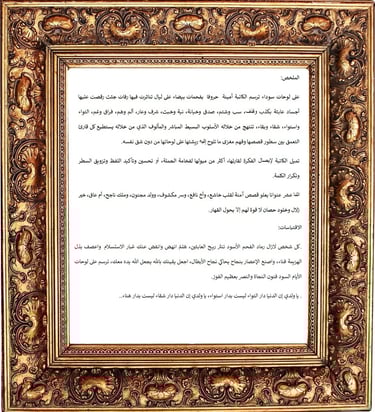 الملخص:
على لوحات سوداء ترسم الكاتبة أمينة حروفا بفحمات بيضاء على ليال تناثرت فيها رفات جثث رقصت عليها
أجساد عابثة بكذب وقصف، سب وشتم، صدق وخيانة، نية وخبث، شرف وعار، ألم وهم، فراق وغم، التواء
واستواء، شقاء وبقاء، تنتهج من خلاله الأسلوب البسيط المباشر والمألوف الذي من خلاله يستطيع كل قارئ
التعمق بين سطور قصصها وفهم مغزى ما تلوح إليه ريشتها على لوحاتها من دون شق نفسه.
تميل الكاتبة لإيصال الفكرة لقارئها، أكثر من ميولها لفخامة الجملة، أو تحسين وتأكيد اللفظ وتزويق السطر
وتكرار الكلمة.
لقا صدر عنوانها يعلو قصص آمنة لقلب خاضع، وأخ نافع، وسر مكشوف، وولد مجنون، وملك ناجح، أم عاق، خير
زلال وجنود حصان لا قوة لهم إلا بحول القهار.
الاقتباسات:
.كل شخص لازال رماد الفحم الأسود تنثر ريح العابثين، فلتم انهض وانفض عنك غبار الاستسلام واعصف بذل
الهزيمة فناء، واصنع الإعصار بنجاح يحاكي نجاح الأبطال، اجعل يقينك بالله يجعل الله يده معك، ترسم على لوحات
الأيام السود فنون النجاة والنصر بعظيم الفوز.
. يا ولدي إن الدنيا دار التواء ليست بدار استواء، يا ولدي إن الدنيا دار شقاء ليست بدار هناء..